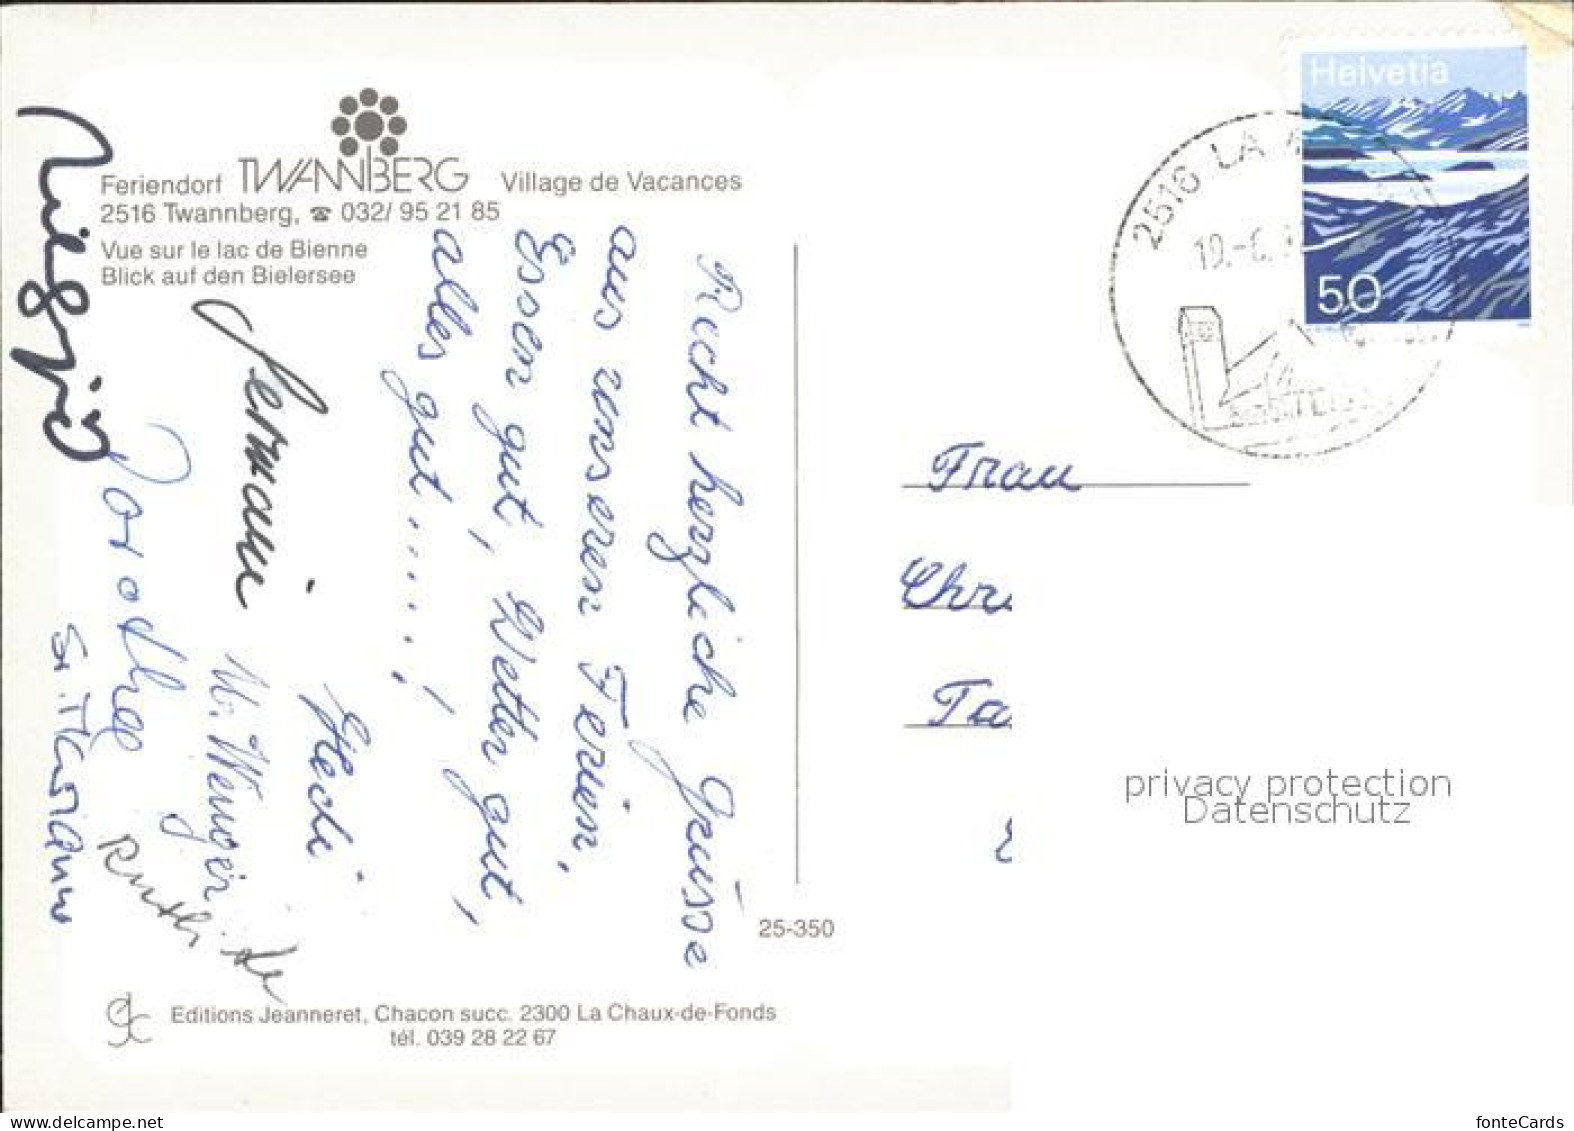 Feriendorf TWANNBERG Village de Vacances
2516 Twannberg, ☎ 032/ 95 21 85
Vue sur le lac de Bienne
Blick auf den Bielersee
Recht herzliche Grüsse
aus unseren Ferien,
Essen gut, Wetter gut,
alles gut.....!
Hedi
W. Wenger
Dorothee
Ruth
Helvetia
50
2516 LA
19.-6.
Frau
Chr
Ta
privacy protection
Datenschutz
25-350
Editions Jeanneret, Chacon succ. 2300 La Chaux-de-Fonds
tél. 039 28 22 67
delcampe.net
fonteCards